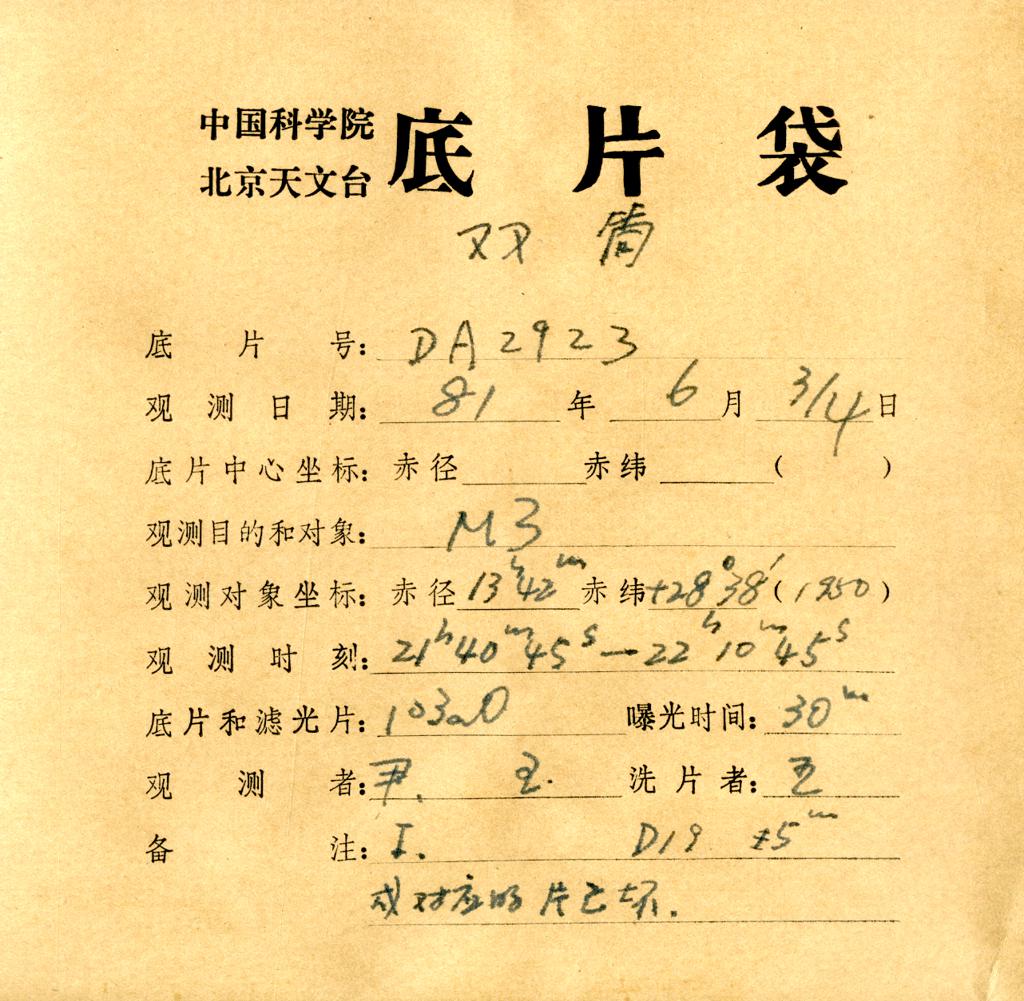 中国科学院
北京天文台
底片袋
双筒
底片号: DA2923
观测日期: 81年6月3/4日
底片中心坐标: 赤径 赤纬 ( )
观测目的和对象: M3
观测对象坐标: 赤径13ʰ42ᵐ赤纬+28°38′(1950)
观测时刻: 21ʰ40ᵐ45ˢ—22ʰ10ᵐ45ˢ
底片和滤光片: 103aO 曝光时间: 30ᵐ
观测者: 尹. 王. 洗片者: 王
备注: I. D19 5ᵐ
成对应的片已坏.